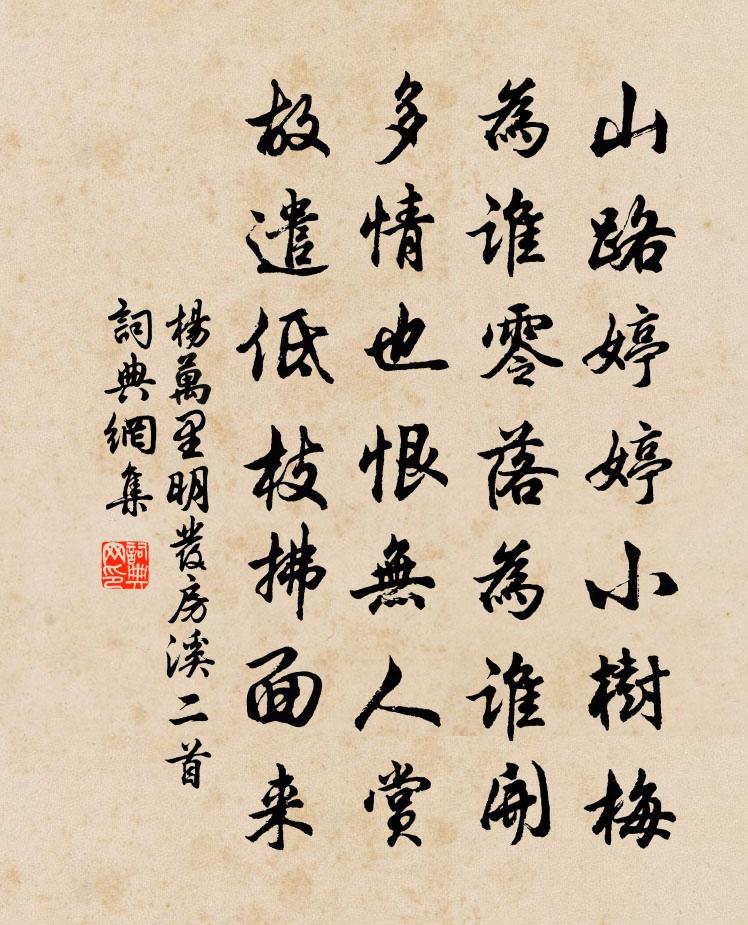 山路婷婷小樹梅
為誰零落為誰開
多情也恨無人賞
故遣低枝拂面来
楊萬里明發房溪二首
詞典網集
詞典网印